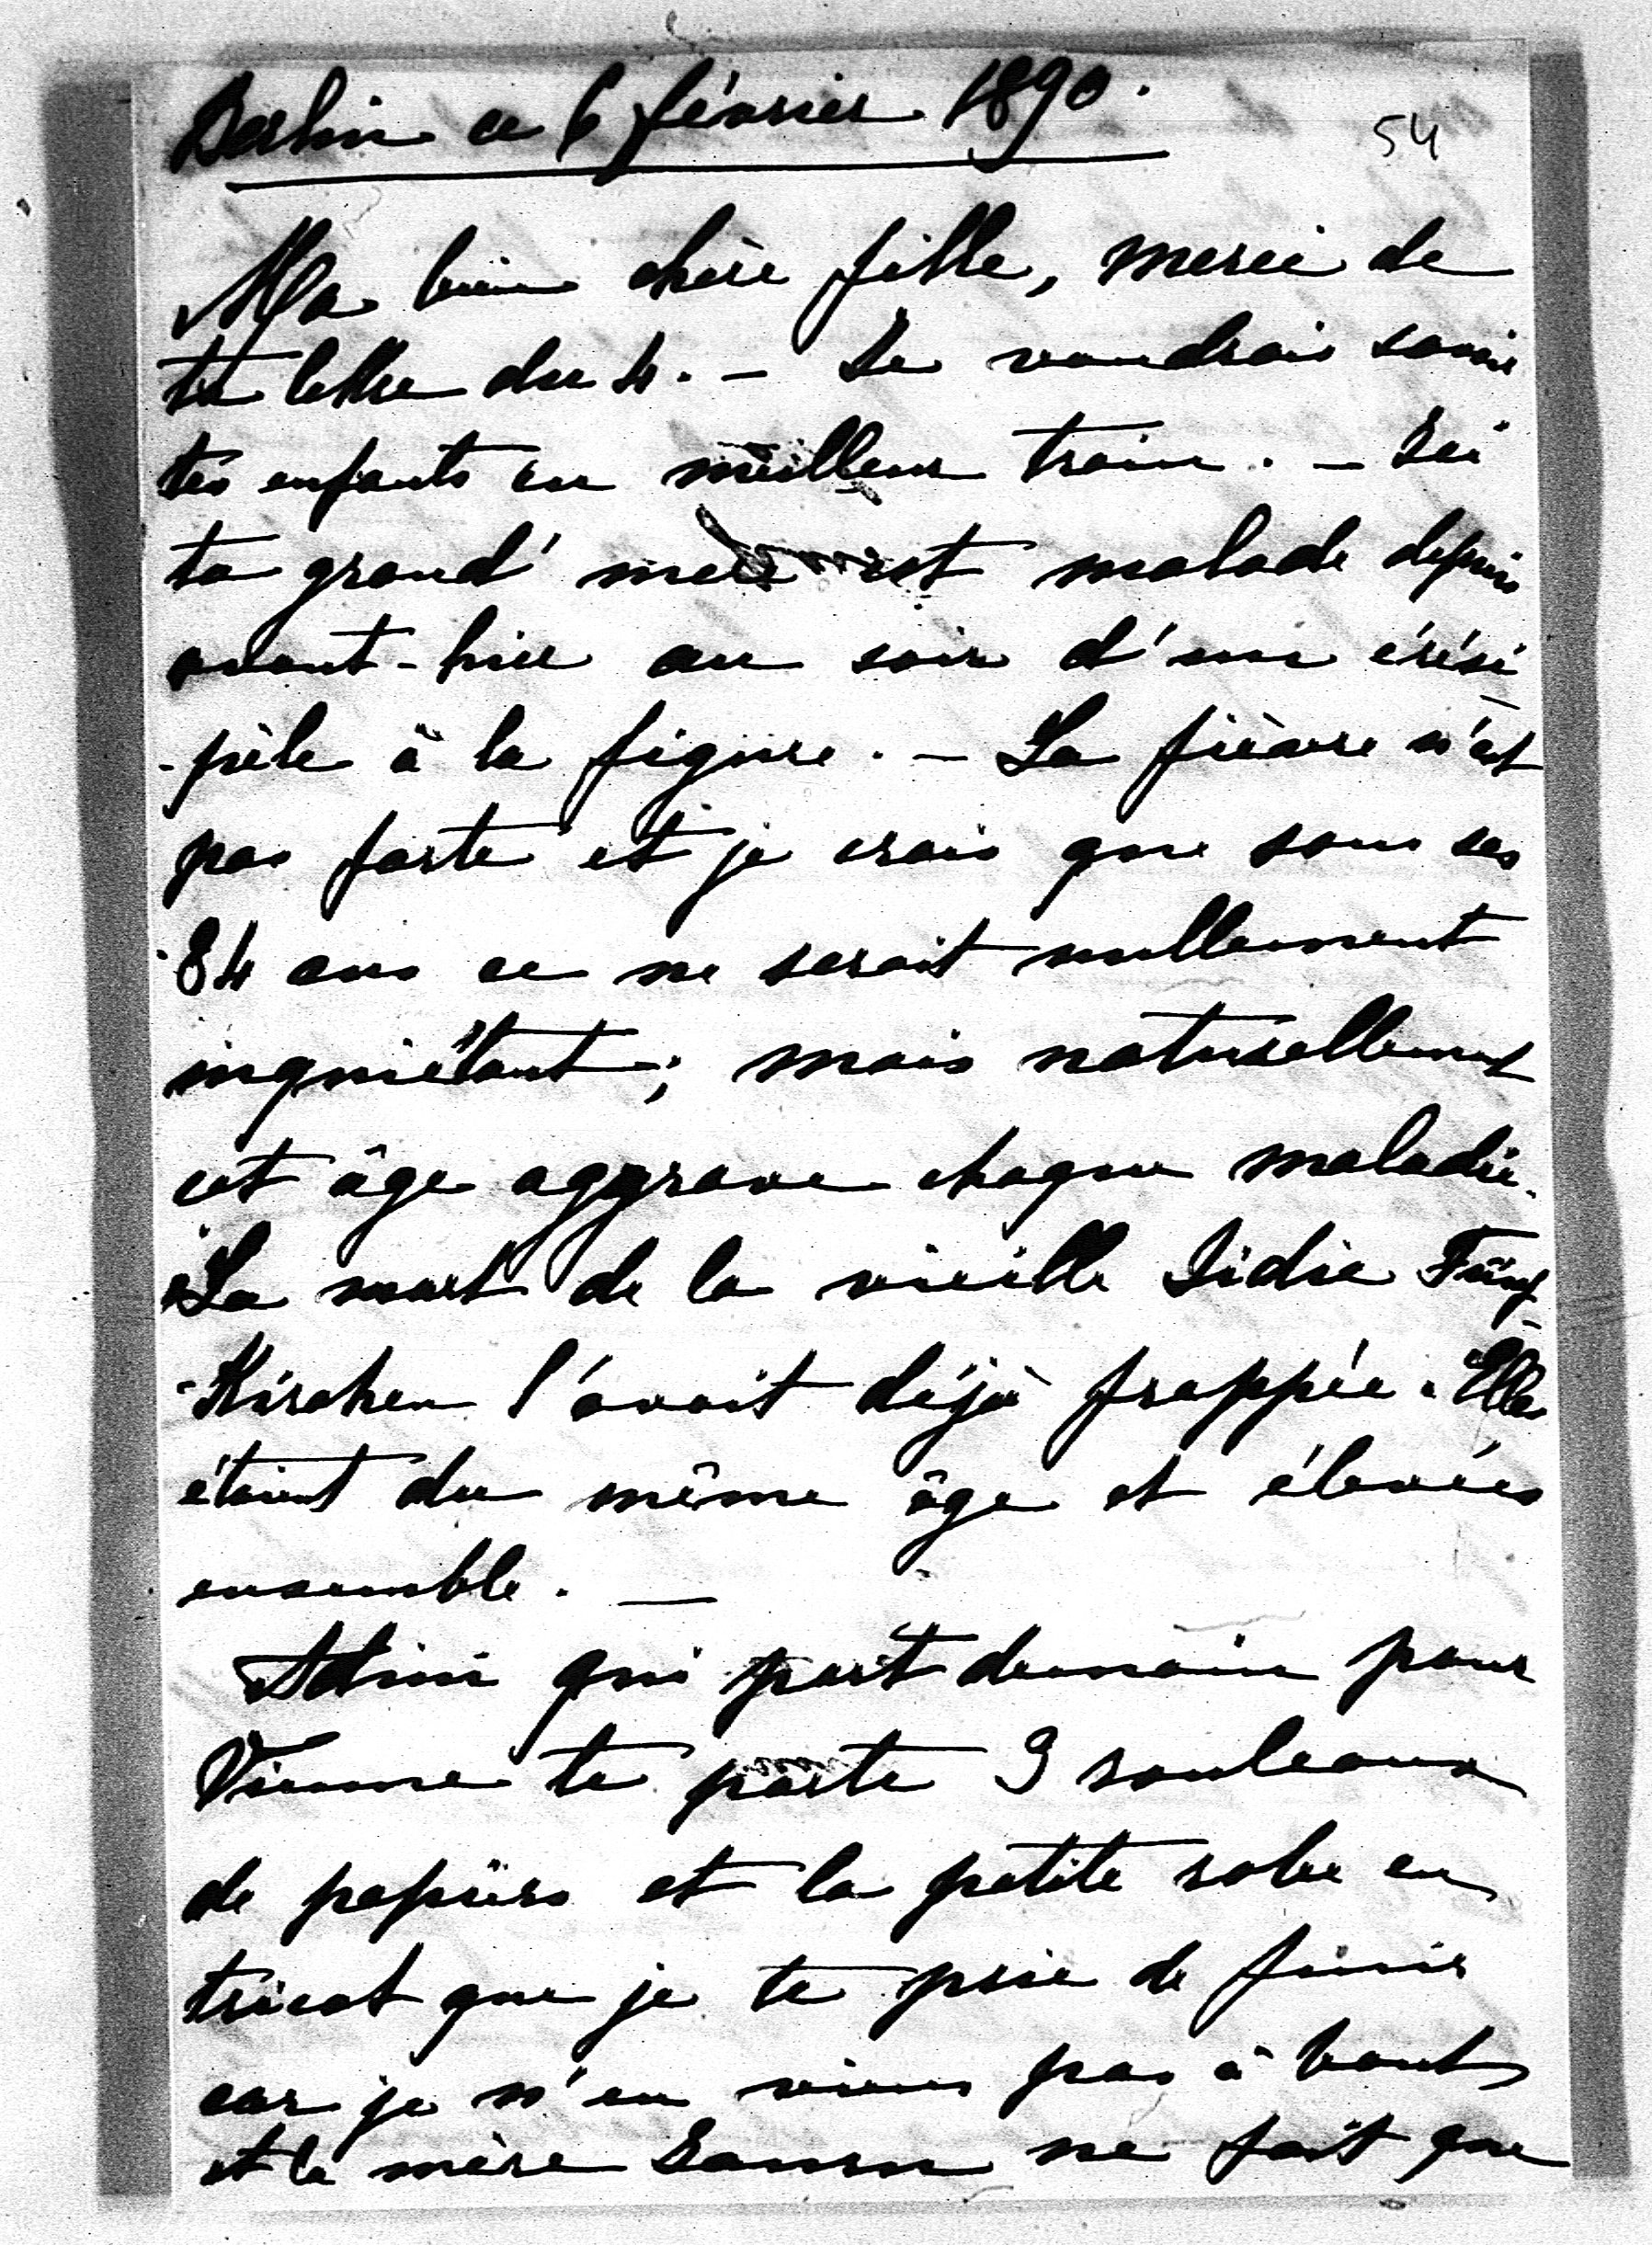 Berlin ce 6 février 1890.
54
Ma bien chère fille, merci de
ta lettre du 4. – Je voudrais savoir
tes enfants en meilleur train. – Ici
ta grand' mère est malade depuis
avant-hier au soir d'un érési
-pèle à la figure. – La fièvre n'est
pas forte et je crois que sans ses
84 ans ce ne serait nullement
inquiétant; mais naturellement
cet âge aggrave chaque maladie.
La mort de la vieille Sidie Fünf-
-Kirchen l'avait déjà frappée. Elles
étaient du même âge et élevées
ensemble. –
qui part demain pour
Vienne te porte 3 rouleaux
de papiers et la petite robe en
tricot que je te prie de finir
car je n'en viens pas à bout
et la mère ne fait que